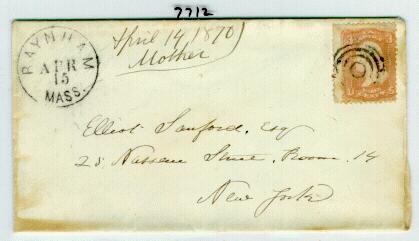 7712
RAYNHAM
APR
15
MASS.
April 14, 1870
Mother
Elliot Sanford, Esq
28 Nassau Street, Room 14
New York